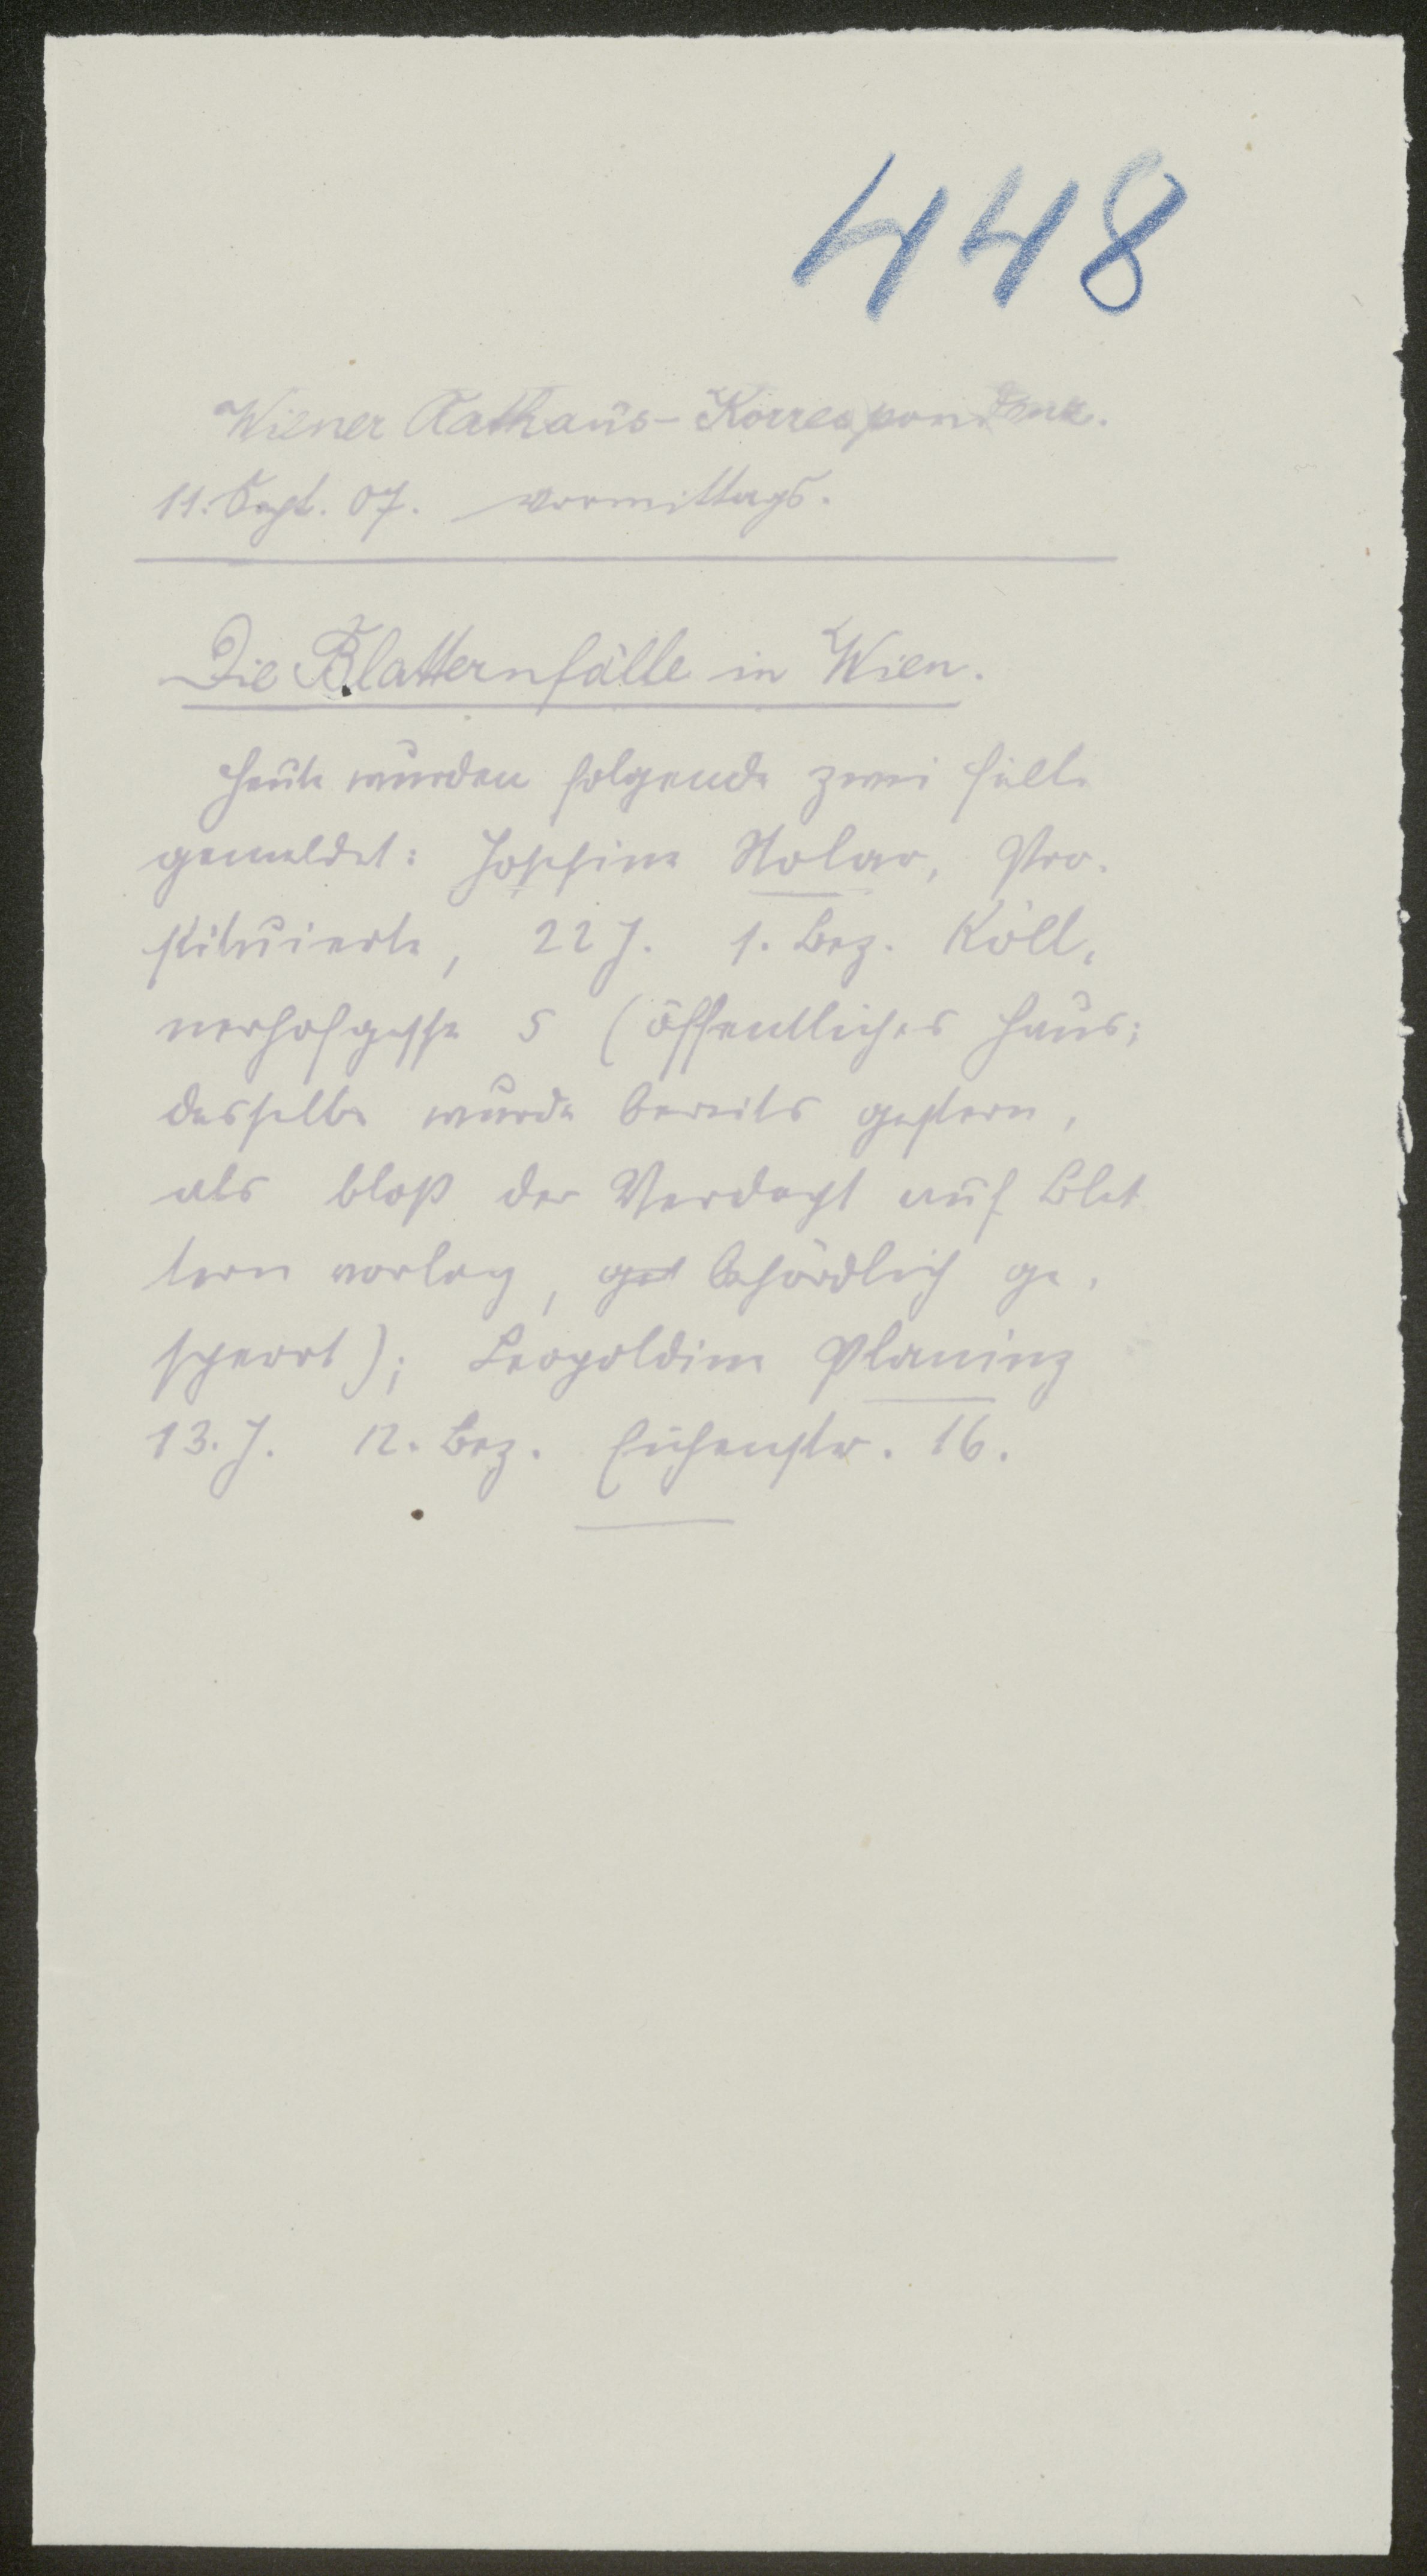 448
Wiener Rathaus-Korrespondenz.
11. Sept. 07. vormittags.
Die Blatternfälle in Wien.
Heute wurden folgende zwei Fälle
gemeldet: Josefine Stolar, Pro-
stituierte, 22 J. 1. Bez. Köll-
nerhofgasse 5 (öffentliches Haus;
dasselbe wurde bereits gestern,
als bloß der Verdacht auf Blat
tern vorlag, behördlich ge-
sperrt); Leopoldine Planinz
13. J. 12. Bez. Eichenstr. 16.